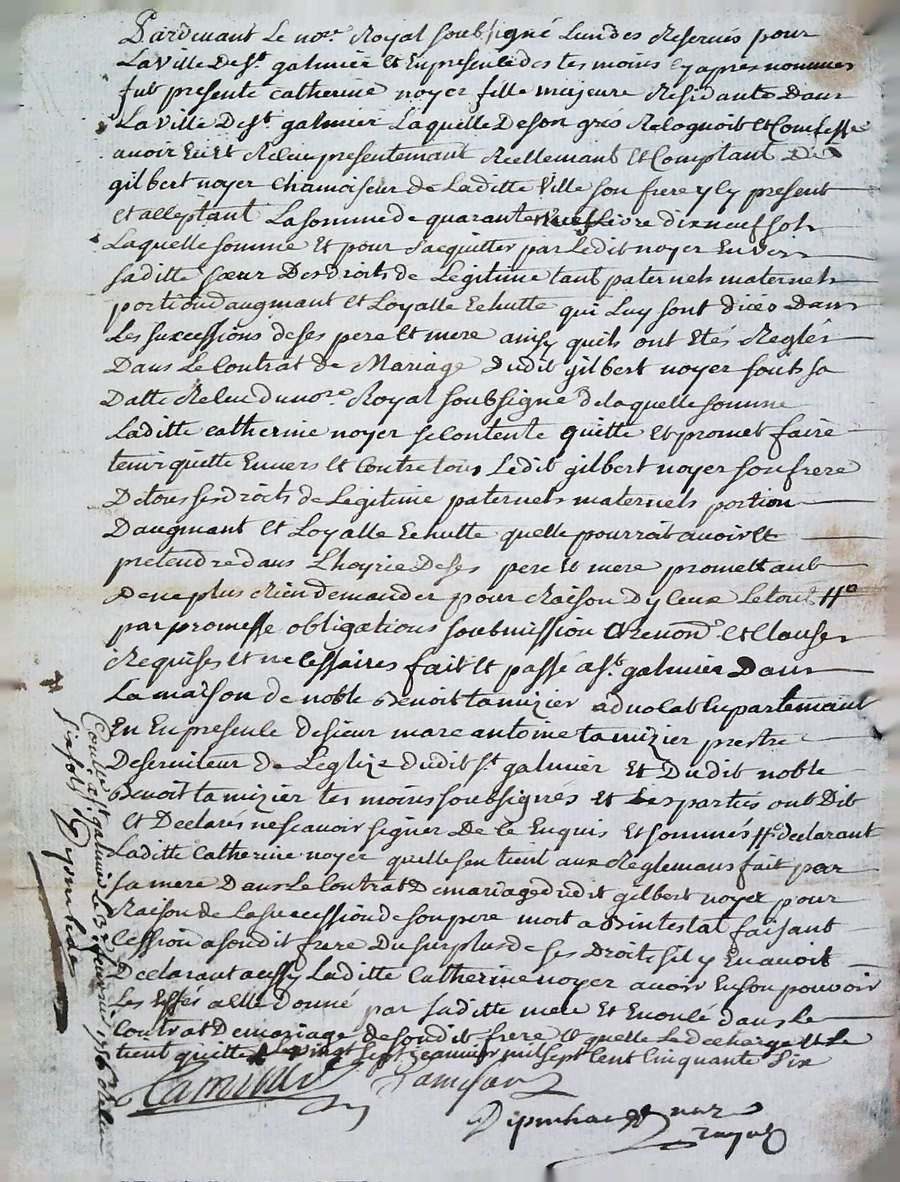 Pardevant Le nore Royal soubsigné Lun des Reservés pour
La Ville De st galmier Et En presence des tesmoins Cy apres nommes
fut presente Catherine noyer fille majeure Residante Dans
La Ville De st galmier Laquelle De son grés Recognoit Et Confesse
avoir Eu Et Receu presentement Reellemant Et Comptant De
gilbert noyer Chamoiseur de Laditte Ville son frere y Cy present
Et acceptant La somme de quarante neuf Livre dix neuf sols
Laquelle somme Et pour sacquitter par Ledit noyer Envers
saditte sœur Des Droits de Legitime tant paternels maternels
portion daugmant Et Loyalle Echutte qui Luy sont dües Dans
Les successions de ses pere Et mere ainsy quils ont Etés Reglés
Dans Le Contrat de Mariage Dudit gilbert noyer sous sa
Datte Receu du nore Royal soubsigné de laquelle somme
Laditte Catherine noyer se Contente quitte Et promet faire
tenir quitte Envers Et Contre tous Ledit gilbert noyer son frere
De tous ses droits de Legitime paternels maternels portion
Daugmant Et Loyalle Echutte quelle pourrait avoir Et
pretendre dans Lhoyrie De ses pere Et mere promettant
De ne plus Rien demander pour Raison Dyceux Le tout
par promesse obligations soubmission Et Renond Et Clauses
Requises Et necessaires fait Et passé a st galmier Dans
La maison de noble Benoit tamizier advocat En partemant
En En presence de sieur marc antoine tamizier prestre
Deserviteur De Leglize dudit st galmier Et Dudit noble
Benoit tamizier tesmoins soubsignés Et Les parties ont Dit
Et Declarés ne scavoir signer De Ce Enquis Et sommés declarant
Laditte Catherine noyer quelle sen tient aux Reglemans fait par
sa mere Dans Le Contrat De mariage dudit gilbert noyer pour
Raison de La succession de son pere mort abintestat faisant
Cession a son dit frere Du surplus de ses Droits sil y En avoit
Declarant aussy Laditte Catherine noyer avoir En son pouvoir
Les Effés a Elle Donné par saditte mere Et Enoncé dans Le
Contrat De mariage de sondit frere Et quelle Le decharge Et Le
tient quitte Le vingt sept Janvier mil sept Cent Cinquante six
Tamizier
Royal
Controllé a st galmier Le fevrier 1756 Receu
six sols